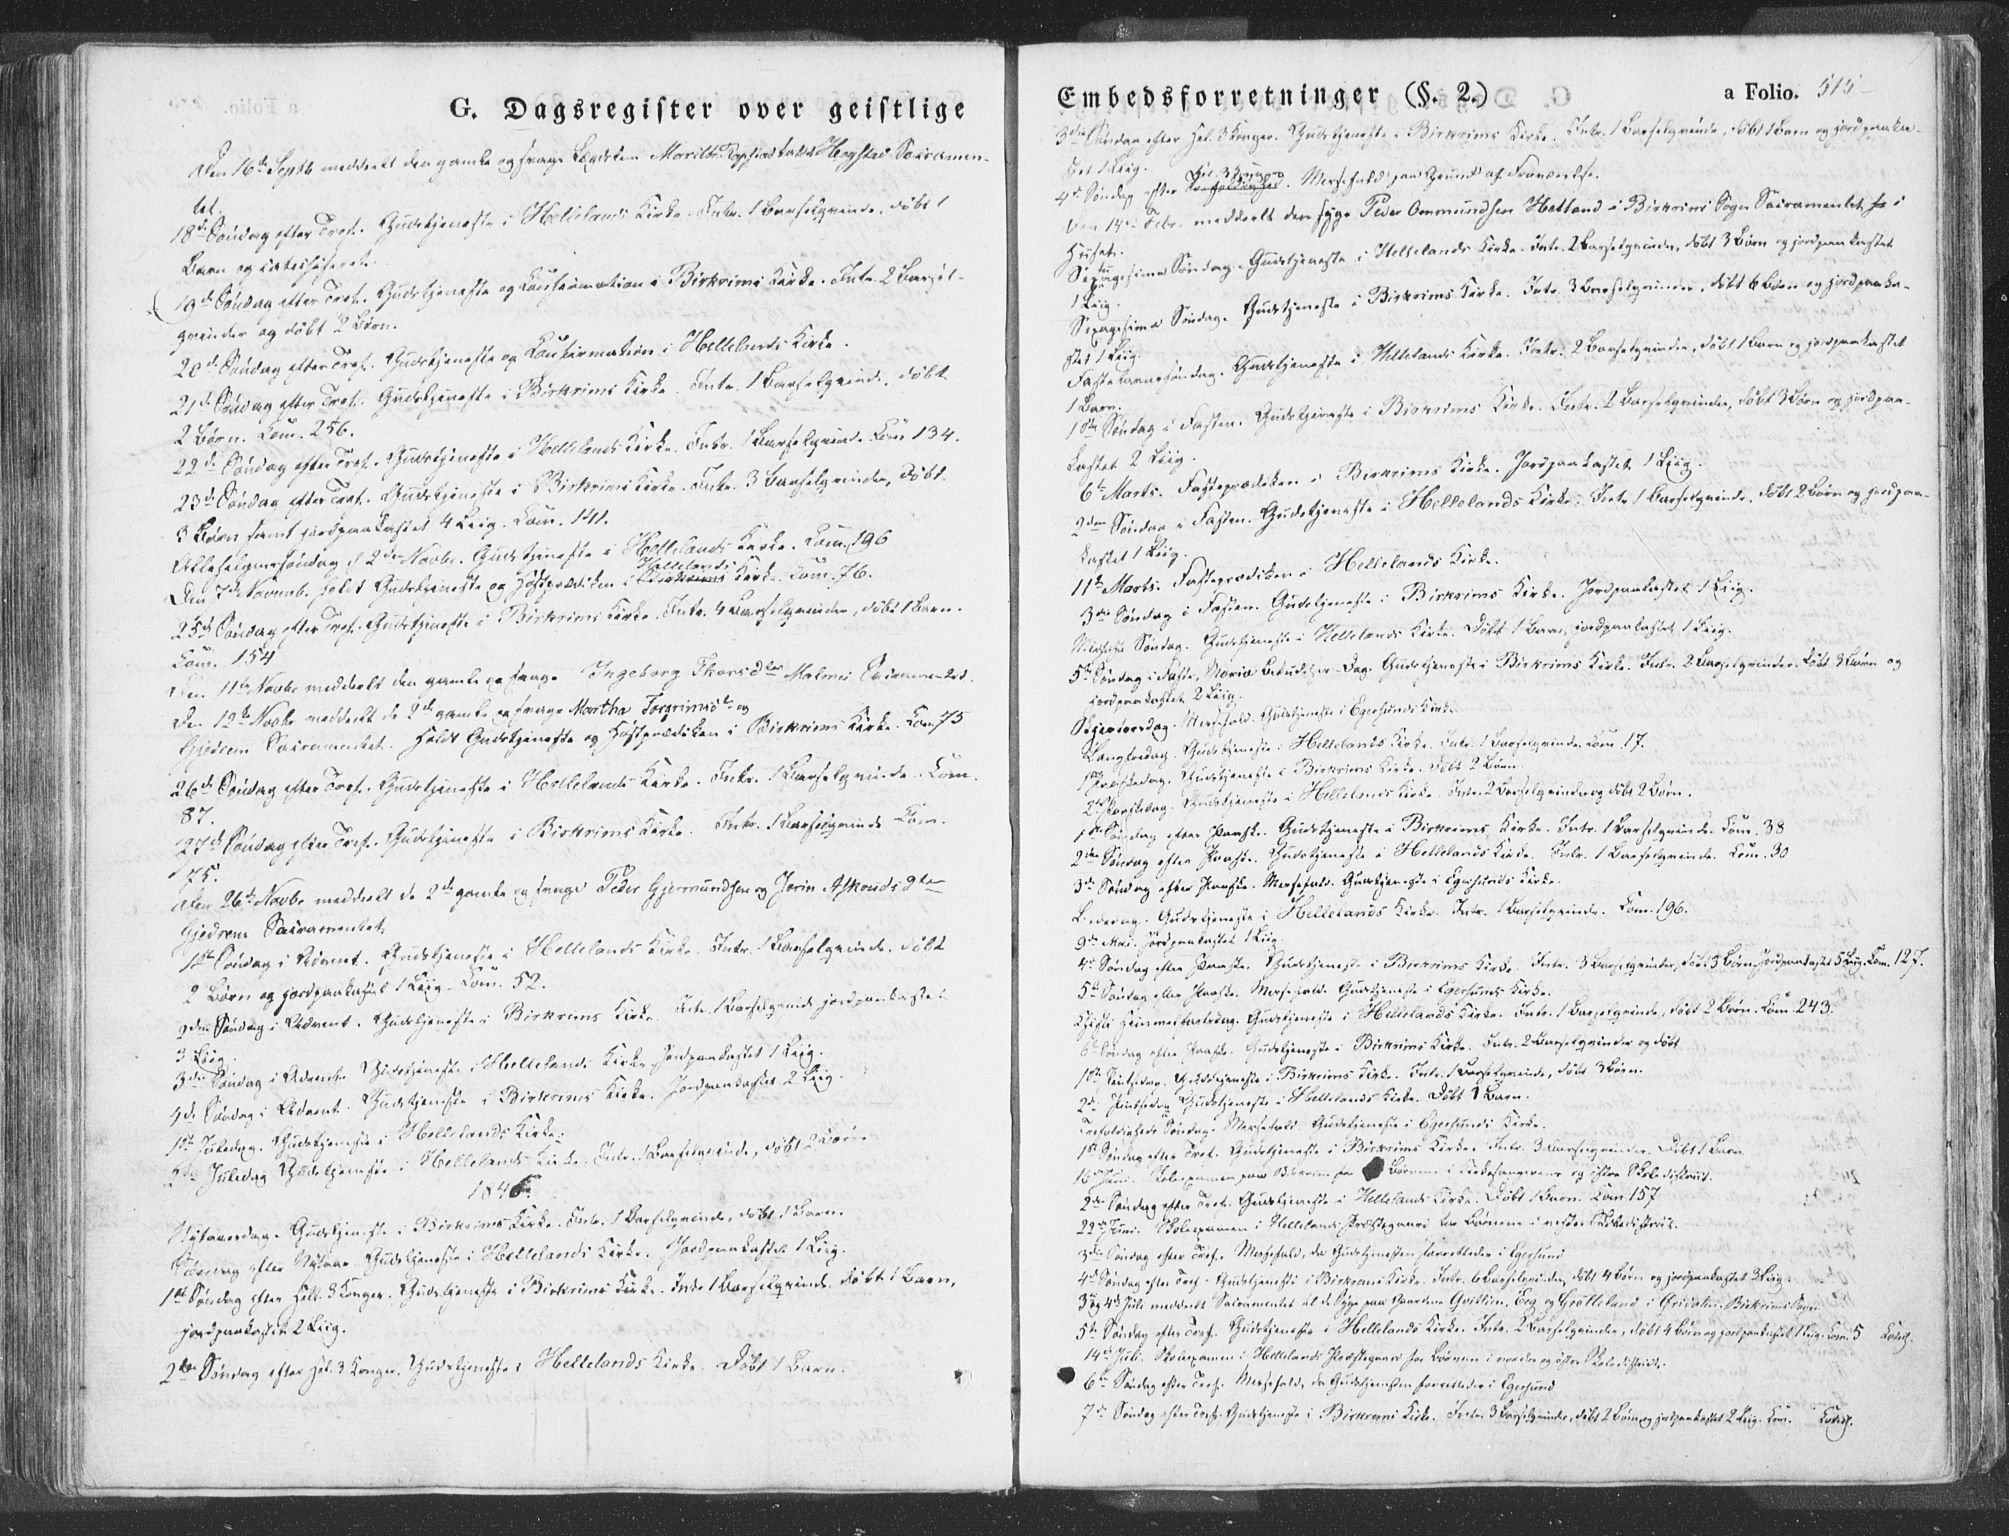 G. Dagsregister over geistlige
Den 16de Septb meddeelt den gamle og svage Hegstad Sacramen-
tet.
18de Søndag efter Tref. Gudstjeneste i Hellelands Kirke. Intr. 1 Barselqvinde, døbt 1
Barn og catechiseret.
19de Søndag efter Tref. Gudstjeneste og Confirmation i Birkrims Kirke. Intr. 2 Barsel-
qvinder og døbt 2 Børn.
20de Søndag efter Tref. Gudstjeneste og Confirmation i Hellelands Kirke.
21de Søndag efter Tref. Gudstjeneste i Birkrims Kirke. Intr. 1 Barselqvinde, døbt
2 Børn. Com. 256.
22de Søndag efter Tref. Gudstjeneste i Hellelands Kirke. Intr. 1 Barselqvinde Com 134.
23de Søndag efter Tref. Gudstjeneste i Birkrims Kirke. Intr. 3 Barselqvinder, døbt
3 Børn samt jordpaakastet 4 Liig. Com. 141.
Allehelgenssøndag d 2den Novbr. Gudstjeneste i Hellelands Kirke. Com. 196
Hellelands
Den 7de Novemb. holdt Gudstjeneste og Høstprædiken i Birkrims Kirke. Com. 76.
25de Søndag efter Tref. Gudstjeneste i Birkrims Kirke. Intr. 4 Barselqvinder, døbt 1 Barn.
Com. 154
Den 11te Novbr meddeelt den gamle og svage Ingeborg Thorsdtr Malmei Sacramentet.
Den 12te Novbr meddeelt de 2de gamle og svage Martha Torgrimsdtr og
Gjedrem Sacramentet. Holdt Gudstjeneste og Høstprædiken i Birkrims Kirke. Com 75
26de Søndag efter Tref. Gudstjeneste i Hellelands Kirke. Intr. 1 Barselqvinde. Com.
87.
27de Søndag efter Tref. Gudstjeneste i Birkrims Kirke. Intr. 1 Barselqvinde Com.
75.
Den 26de Novbr meddeelt de 2de gamle og svage Peder Gjermundsen og Jorin Askouds dtr
Gjedrem Sacramentet.
1ste Søndag i Advent. Gudstjeneste i Hellelands Kirke. Intr. 1 Barselqvinde. Døbt
2 Børn og jordpaakastet 1 Liig. Com. 52.
2den Søndag i Advent. Gudstjeneste i Birkrims Kirke. Intr. 1 Barselqvinde jordpaakastet
3 Liig.
3die Søndag i Advent. Gudstjeneste i Hellelands Kirke. Jordpaakastet 1 Liig.
4de Søndag i Advent. Gudstjeneste i Birkrims Kirke. Jordpaakastet 2 Liig.
1ste Juledag. Gudstjeneste i Hellelands Kirke.
Juledag Gudstjeneste i Hellelands Kirke. Intr. 1 Barselqvinde, døbt 2 Børn
1846.
Nytaarsdag. Gudstjeneste i Birkrims Kirke. Intr. 1 Barselqvinde, døbt 1 Barn.
Søndag efter Nytaar. Gudstjeneste i Hellelands Kirke. Jordpaakastet 1 Liig.
1ste Søndag efter Hell. 3 Konger. Gudstjeneste i Birkrims Kirke. Intr 1 Barselqvinde, døbt 1 Barn,
jordpaakastet 2 Liig.
2den Søndag efter Hel. 3 Konger. Gudstjeneste i Hellelands Kirke. Døbt 1 Barn.
Embedsforretninger (§. 2.)
a Folio. 515
3die Søndag efter Hel. 3 Konger. Gudstjeneste i Birkrims Kirke. Intr. 1 Barselqvinde, døbt 1 Barn og jordpaaka-
stet 1 Liig.
Hel. 3 Kong
4de Søndag efter Trefoldighed. Messefald paa Grund af Fraværelse.
Den 14de Febr. meddeelt den syge Peder Ommundsen Hetland i Birkrims Sogn Sacramentet i
Huset.
Septuagesima Søndag. Gudstjeneste i Hellelands Kirke. Intr. 2 Barselqvinder, døbt 3 Børn og jordpaakastet
1 Liig.
Sexagesima Søndag. Gudstjeneste i Birkrims Kirke. Intr. 3 Barselqvinder, døbt 6 Børn og jordpaaka-
stet 1 Liig.
Fastelavnssøndag. Gudstjeneste i Hellelands Kirke. Intr. 2 Barselqvinder, døbt 1 Barn og jordpaakastet
1 Barn.
1ste Søndag i Fasten. Gudstjeneste i Birkrims Kirke. Intr. 2 Barselqvinder, døbt 3 Børn og jordpaa-
kastet 2 Liig.
6te Marts. Fasteprædiken i Birkrims Kirke. Jordpaakastet 1 Liig.
2den Søndag i Fasten. Gudstjeneste i Hellelands Kirke. Intr 1 Barselqvinde, døbt 2 Børn og jordpaa-
kastet 1 Liig.
11te Marts. Fasteprædiken i Hellelands Kirke.
3die Søndag i Fasten. Gudstjeneste i Birkrims Kirke. Jordpaakastet 1 Liig.
Midfaste Søndag. Gudstjeneste i Hellelands Kirke. Døbt 1 Barn, jordpaakastet 1 Liig.
5te Søndag i Faste, Mariæ Bebudelses-Dag. Gudstjeneste i Birkrims Kirke. Intr. 2 Barselqvinder. Døbt 3 Børn og
jordpaakastet 2 Liig.
Skjærtorsdag. Messefald. Gudstjeneste i Egersunds Kirke.
Langfredag. Gudstjeneste i Hellelands Kirke. Intr. 1 Barselqvinde. Com. 17.
1ste Paaskedag. Gudstjeneste i Birkrims Kirke. Døbt 2 Børn.
2den Paaskedag. Gudstjeneste i Hellelands Kirke. Intr. 2 Barselqvinder og døbt 2 Børn.
1ste Søndag efter Paaske. Gudstjeneste i Birkrims Kirke. Intr. 1 Barselqvinde. Com. 38
2den Søndag efter Paaske. Gudstjeneste i Hellelands Kirke. Intr. 1 Barselqvinde. Com. 30
3die Søndag efter Paaske. Messefald. Gudstjeneste i Egersunds Kirke.
Bededag. Gudstjeneste i Hellelands Kirke. Intr. 1 Barselqvinde. Com. 196.
9de Mai. Jordpaakastet 1 Liig
4de Søndag efter Paaske. Gudstjeneste i Birkrims Kirke. Intr. 3 Barselqvinder, døbt 3 Børn. Jordpaakastet 5 Liig. Com. 127.
5te Søndag efter Paaske. Messefald. Gudstjeneste i Egersunds Kirke.
Christi Himmelfartsdag. Gudstjeneste i Hellelands Kirke. Intr. 1 Barselqvinde, døbt 2 Børn. Com. 243.
6te Søndag efter Paaske. Gudstjeneste i Birkrims Kirke. Intr. 2 Barselqvinder og døbt
1ste Pintsedag. Gudstjeneste i Birkrims Kirke. Intr. 1 Barselqvinde, døbt 3 Børn.
2den Pintsedag Gudstjeneste i Hellelands Kirke. Døbt 1 Barn.
Trefoldigheds Søndag. Messefald. Gudstjeneste i Egersunds Kirke.
1ste Søndag efter Tref. Gudstjeneste i Birkrims Kirke. Intr. 3 Barselqvinder. Døbt 1 Barn
16de Juni. Skoleexamen paa Birkrim for Børnene i Kirkesangerens og østre Skoledistrict.
2den Søndag efter Tref. Gudstjeneste i Hellelands Kirke. Døbt 1 Barn. Com 157
22de Juni. Skoleexamen i Hellelands Præstegaard for Børnene i vestre Skoledistrict.
3die Søndag efter Tref. Messefald, da Gudstjenesten forrettedes i Egersund
4de Søndag efter Tref. Gudstjeneste i Birkrims Kirke. Intr. 6 Barselqvinder, døbt 4 Børn og jordpaakastet 3 Liig.
3die og 4de Juli meddeelt Sacramentet til de Syge paa Gaardene Gvitlen, Eeg og Grötteland i Birkrims Sogn
5te Søndag efter Tref. Gudstjeneste i Hellelands Kirke. Intr. 2 Barselqvinder, døbt 4 Børn og jordpaakastet 1 Liig. Com. 5
14de Juli. Skoleexamen i Hellelands Præstegaard for Børnene i nordre og østre Skoledistrict.
6te Søndag efter Tref. Messefald, da Gudstjenesten forrettedes i Egersund
7de Søndag efter Tref. Gudstjeneste i Birkrems Kirke. Intr. 3 Barselqvinder, døbt 2 Børn og jordpaakastet 2 Liig. Com.